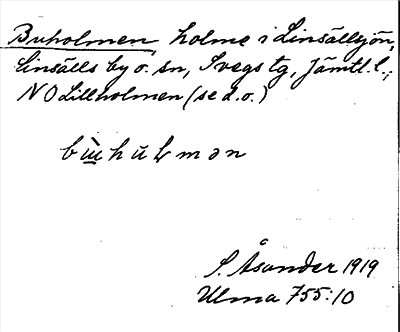 Buholmen, holme i Linsällsjön,
Linsälls by o. sn, Svegs tg, Jämtl. l.;
NO Lillholmen (se d. o.)
S. Åsander 1919
Ulma 755:10